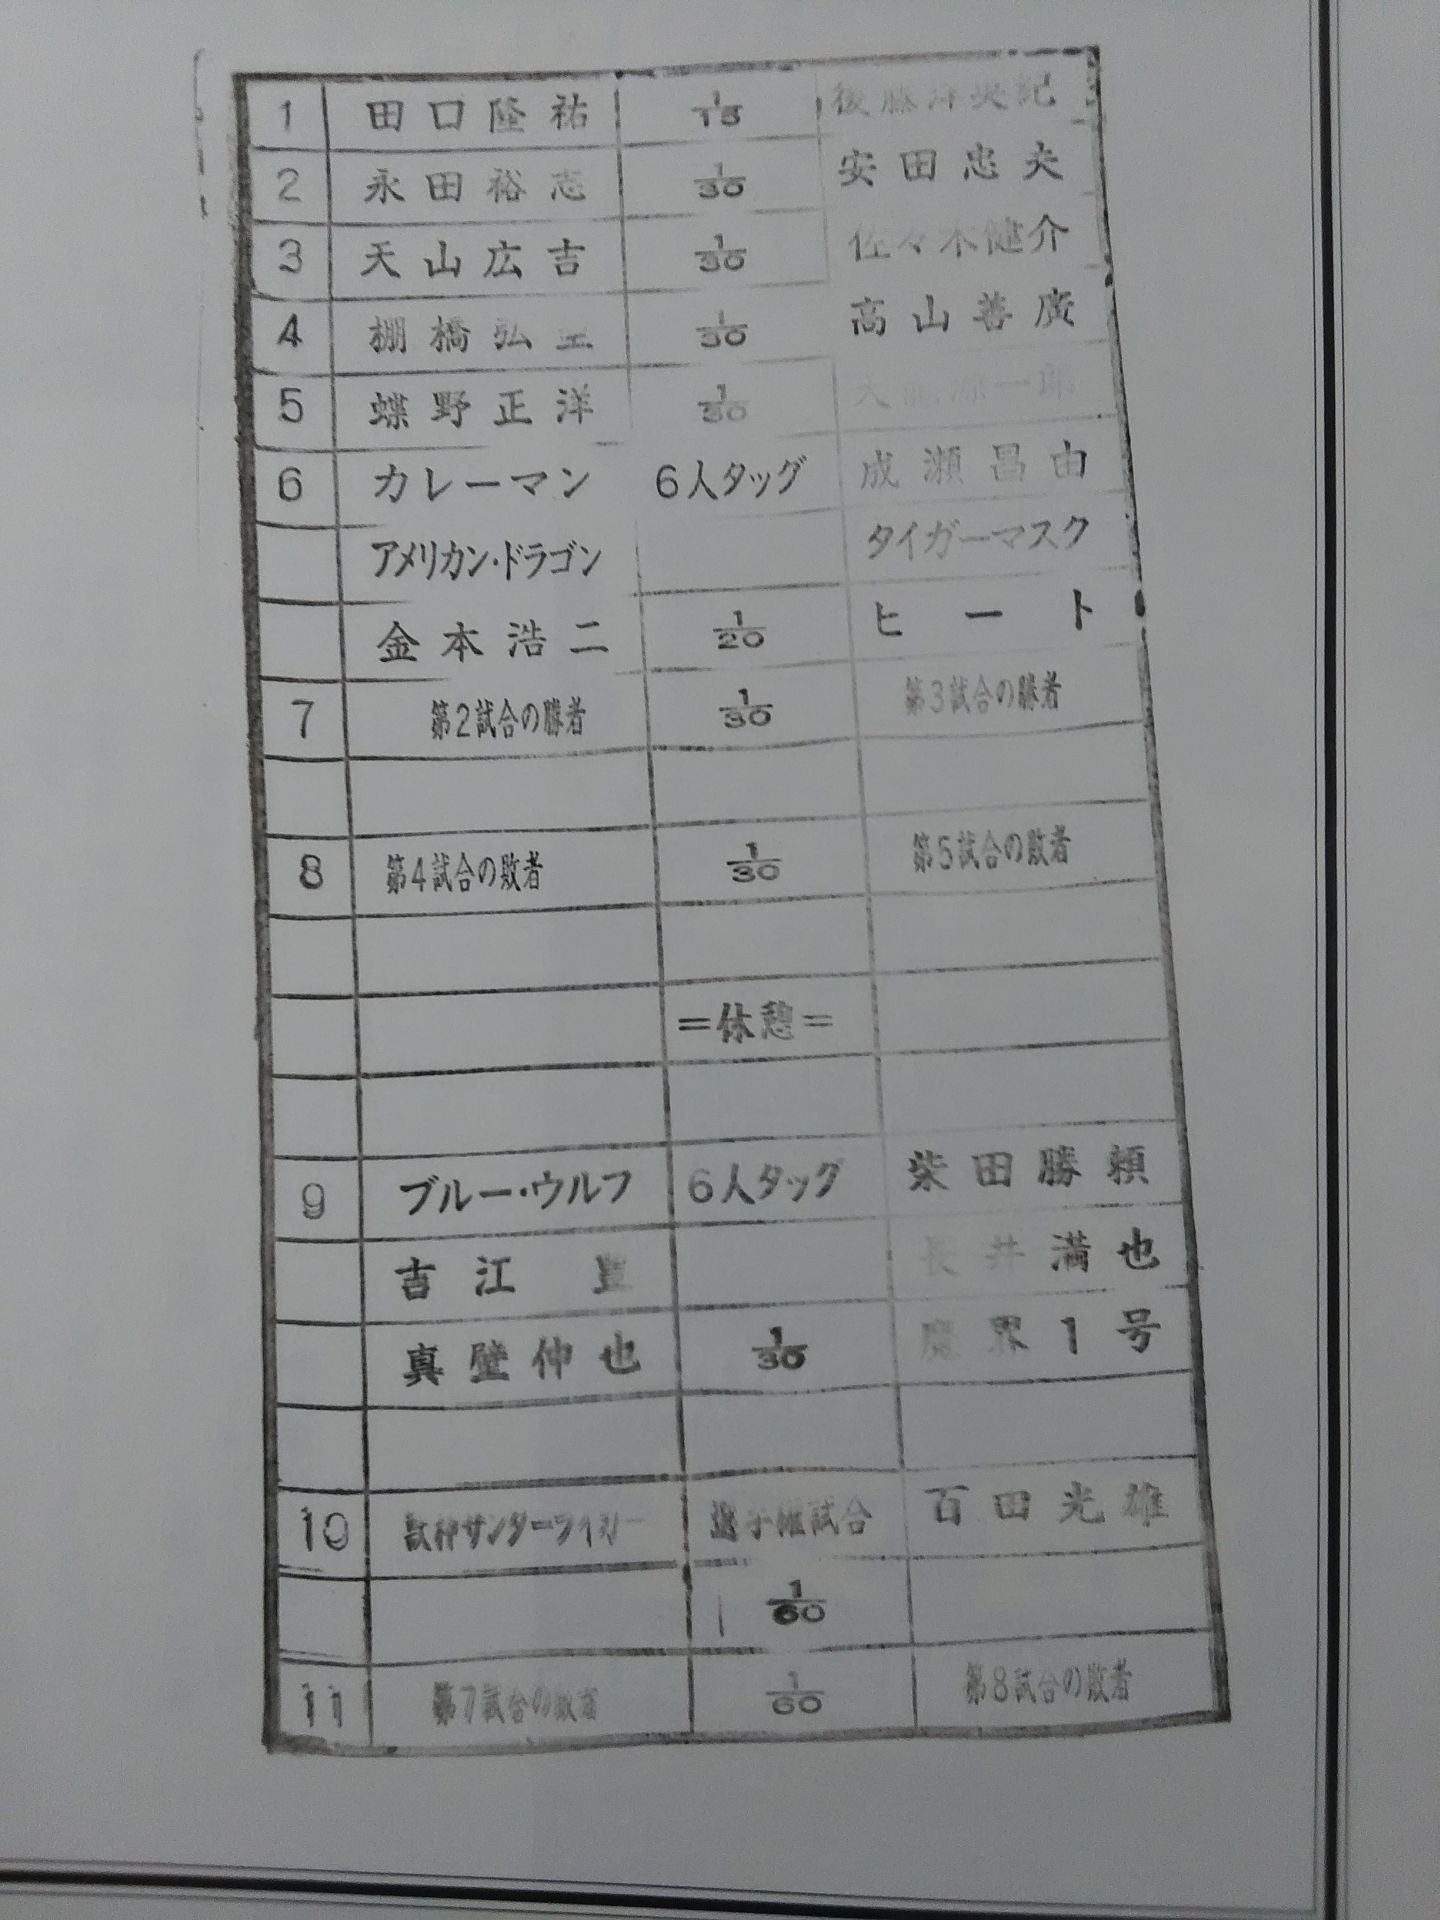 1 田口隆祐 1/15 後藤洋央紀
2 永田裕志 1/30 安田忠夫
3 天山広吉 1/30 佐々木健介
4 棚橋弘至 1/30 高山善廣
5 蝶野正洋 1/30 天龍源一郎
6 カレーマン 6人タッグ 成瀬昌由
アメリカン・ドラゴン タイガーマスク
金本浩二 1/20 ヒート
7 第2試合の勝者 1/30 第3試合の勝者
8 第4試合の敗者 1/30 第5試合の敗者
=休憩=
9 ブルー・ウルフ 6人タッグ 柴田勝頼
吉江豊 長井満也
真壁伸也 1/30 魔界1号
10 獣神サンダーライガー 選手権試合 百田光雄
1/60
11 第7試合の敗者 1/60 第8試合の敗者